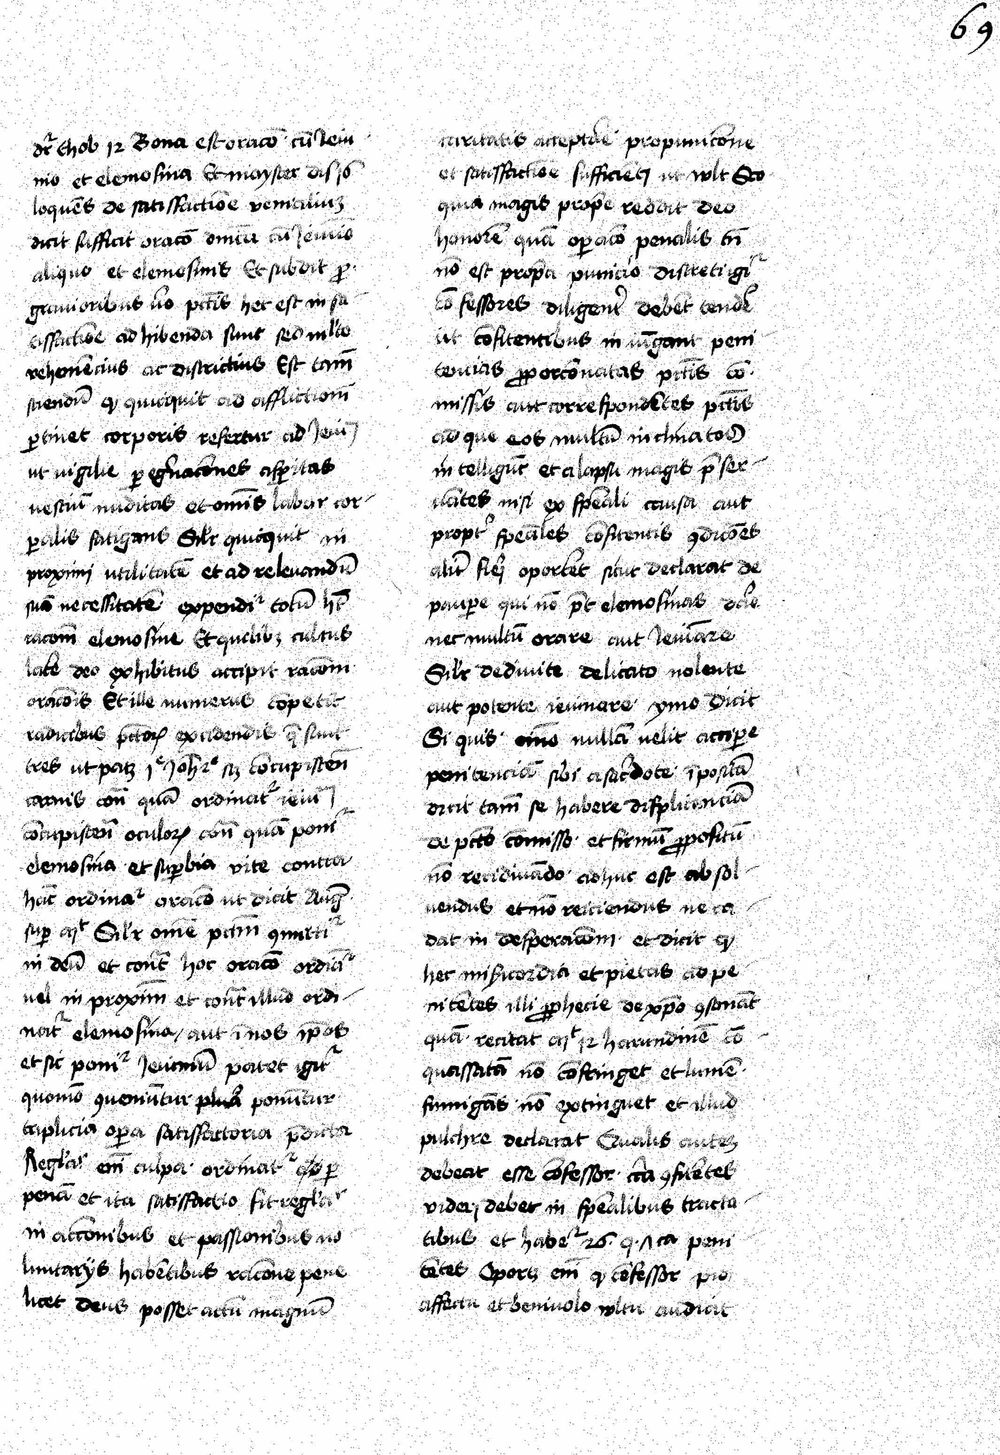 69
dr̄ thob 12 Bona est oracō cū Jeiu
nio et elemosina Et magister dis 16
loquēs de satisfactiōe venialiuꝫ
dicit sufficit oracō dn̄ica cū Jeiuīo
aliquo et elemosinis Et subdit ꝓ
grauioribus v̄o pct̄is hec est in sa
tisfactiōe adhibenda sunt sed ml̄to
vehemēcius ac districtius Est tam̄
sciendū ꝙ quicquit ad afflictiom̄
ꝑtinet corporis refertur ad Jeiu
ut vigilie ꝑeḡnacōnes asꝑitas
vestiū nuditas et omīs labor cor
ꝑalis fatigans Sil̄r quicquit in
proximi utilitatē et ad releuandū
suā necessitatē expendit᷑ totū h̄t
racom̄ elemosine Et quelibꝫ cultus
lat̄e deo exhibitus accipit racōm
oracōis Et ille numerus cōpetit
radicibus pct̄oꝝ excidendis q̄ sunt
tres ut patꝫ 1ᵉ Joh̄ 2ᵉ sꝫ cōcupiscen̄
carnis con̄ quā ordinat᷑ ieiu
cōcupiscen̄ oculoꝝ con̄ quā ponit᷑
elemosina et suꝑbia vite contra
hāc ordinat᷑ oracō ut dicit Aug̅
suꝑ Sil̄r om̄e pct̄m ꝯmittit᷑
in deū et cont̄ hoc oracō ordīat᷑
vel in proximū et cont̄ illud ordi
nat᷑ elemosina / aut ī nos ip̄os
et sic ponit᷑ Jeiuniū patet igit᷑
quomō ꝯueniūtur pluā ponūtur
triplicia oꝑa satisfactoria p̄dicta
Regl̄ar̄ em̄ culpa ordinat᷑ ꝑ
penā et ita satisfactio fit regl̄ar̄
in actōnibus et passionibus uo
luntarijs habētibus racōne pene
licet deus posset actū magnū
caritatis acceptāe pro punicōne
et satisfactiōe sufficiēti ut vult Sco
quia magis propͤe reddit deo
honorē quā oꝑacō penalis tn̄
nō est propͥa punicio discreti igit᷑
cōfessores diligent̄ debēt tendēe
ut cōfitentibus iniūgant peni
tencias ꝓporcōnatas pct̄is cō
missis aut correspondētes pct̄is
ad que eos multū inclinatos
intelligūt et a lapsu magis p̄ser
uātes nisi ex speāli causa aut
propt̄ speāles cōfitentis ꝯdicōes
alit̄ fieri oportet sicut declarat de
pauꝑe qui nō pōt elemosinas dāe
nec multū orare aut Jeiunare
Sil̄r de diuite delicato nolente
aut potente ieiunare ymo dicit
Si quis om̄o nullā velit acciꝑe
penitenciā sibi a sac̄dote īpositā
dicit tam̄ se habere displicenciā
de pct̄o cōmisso et firmū ꝓpositū
nō recidiuādo adhuc est absol
uendus et nō reiciendus ne ca
dat in desperacōm et dicit ꝙ
hec misīcordia et pietas ad pe
nitētes illi ꝓphecie de xp̄o ꝯsonāt
quā recitat 12 harundinē cō
quassatā nō cōfringet et linū
fumigās nō extinguet et illud
pulchre declarat Qualis autem
debeat esse cōfessor c̄ca ꝯfitētes
videri debet in speālibus tracta
tibus et habet᷑ 26 q 7 ca peni
tētes Oportꝫ em̄ ꝙ cōfessor pio
affectu et beniuolo vultu audiat